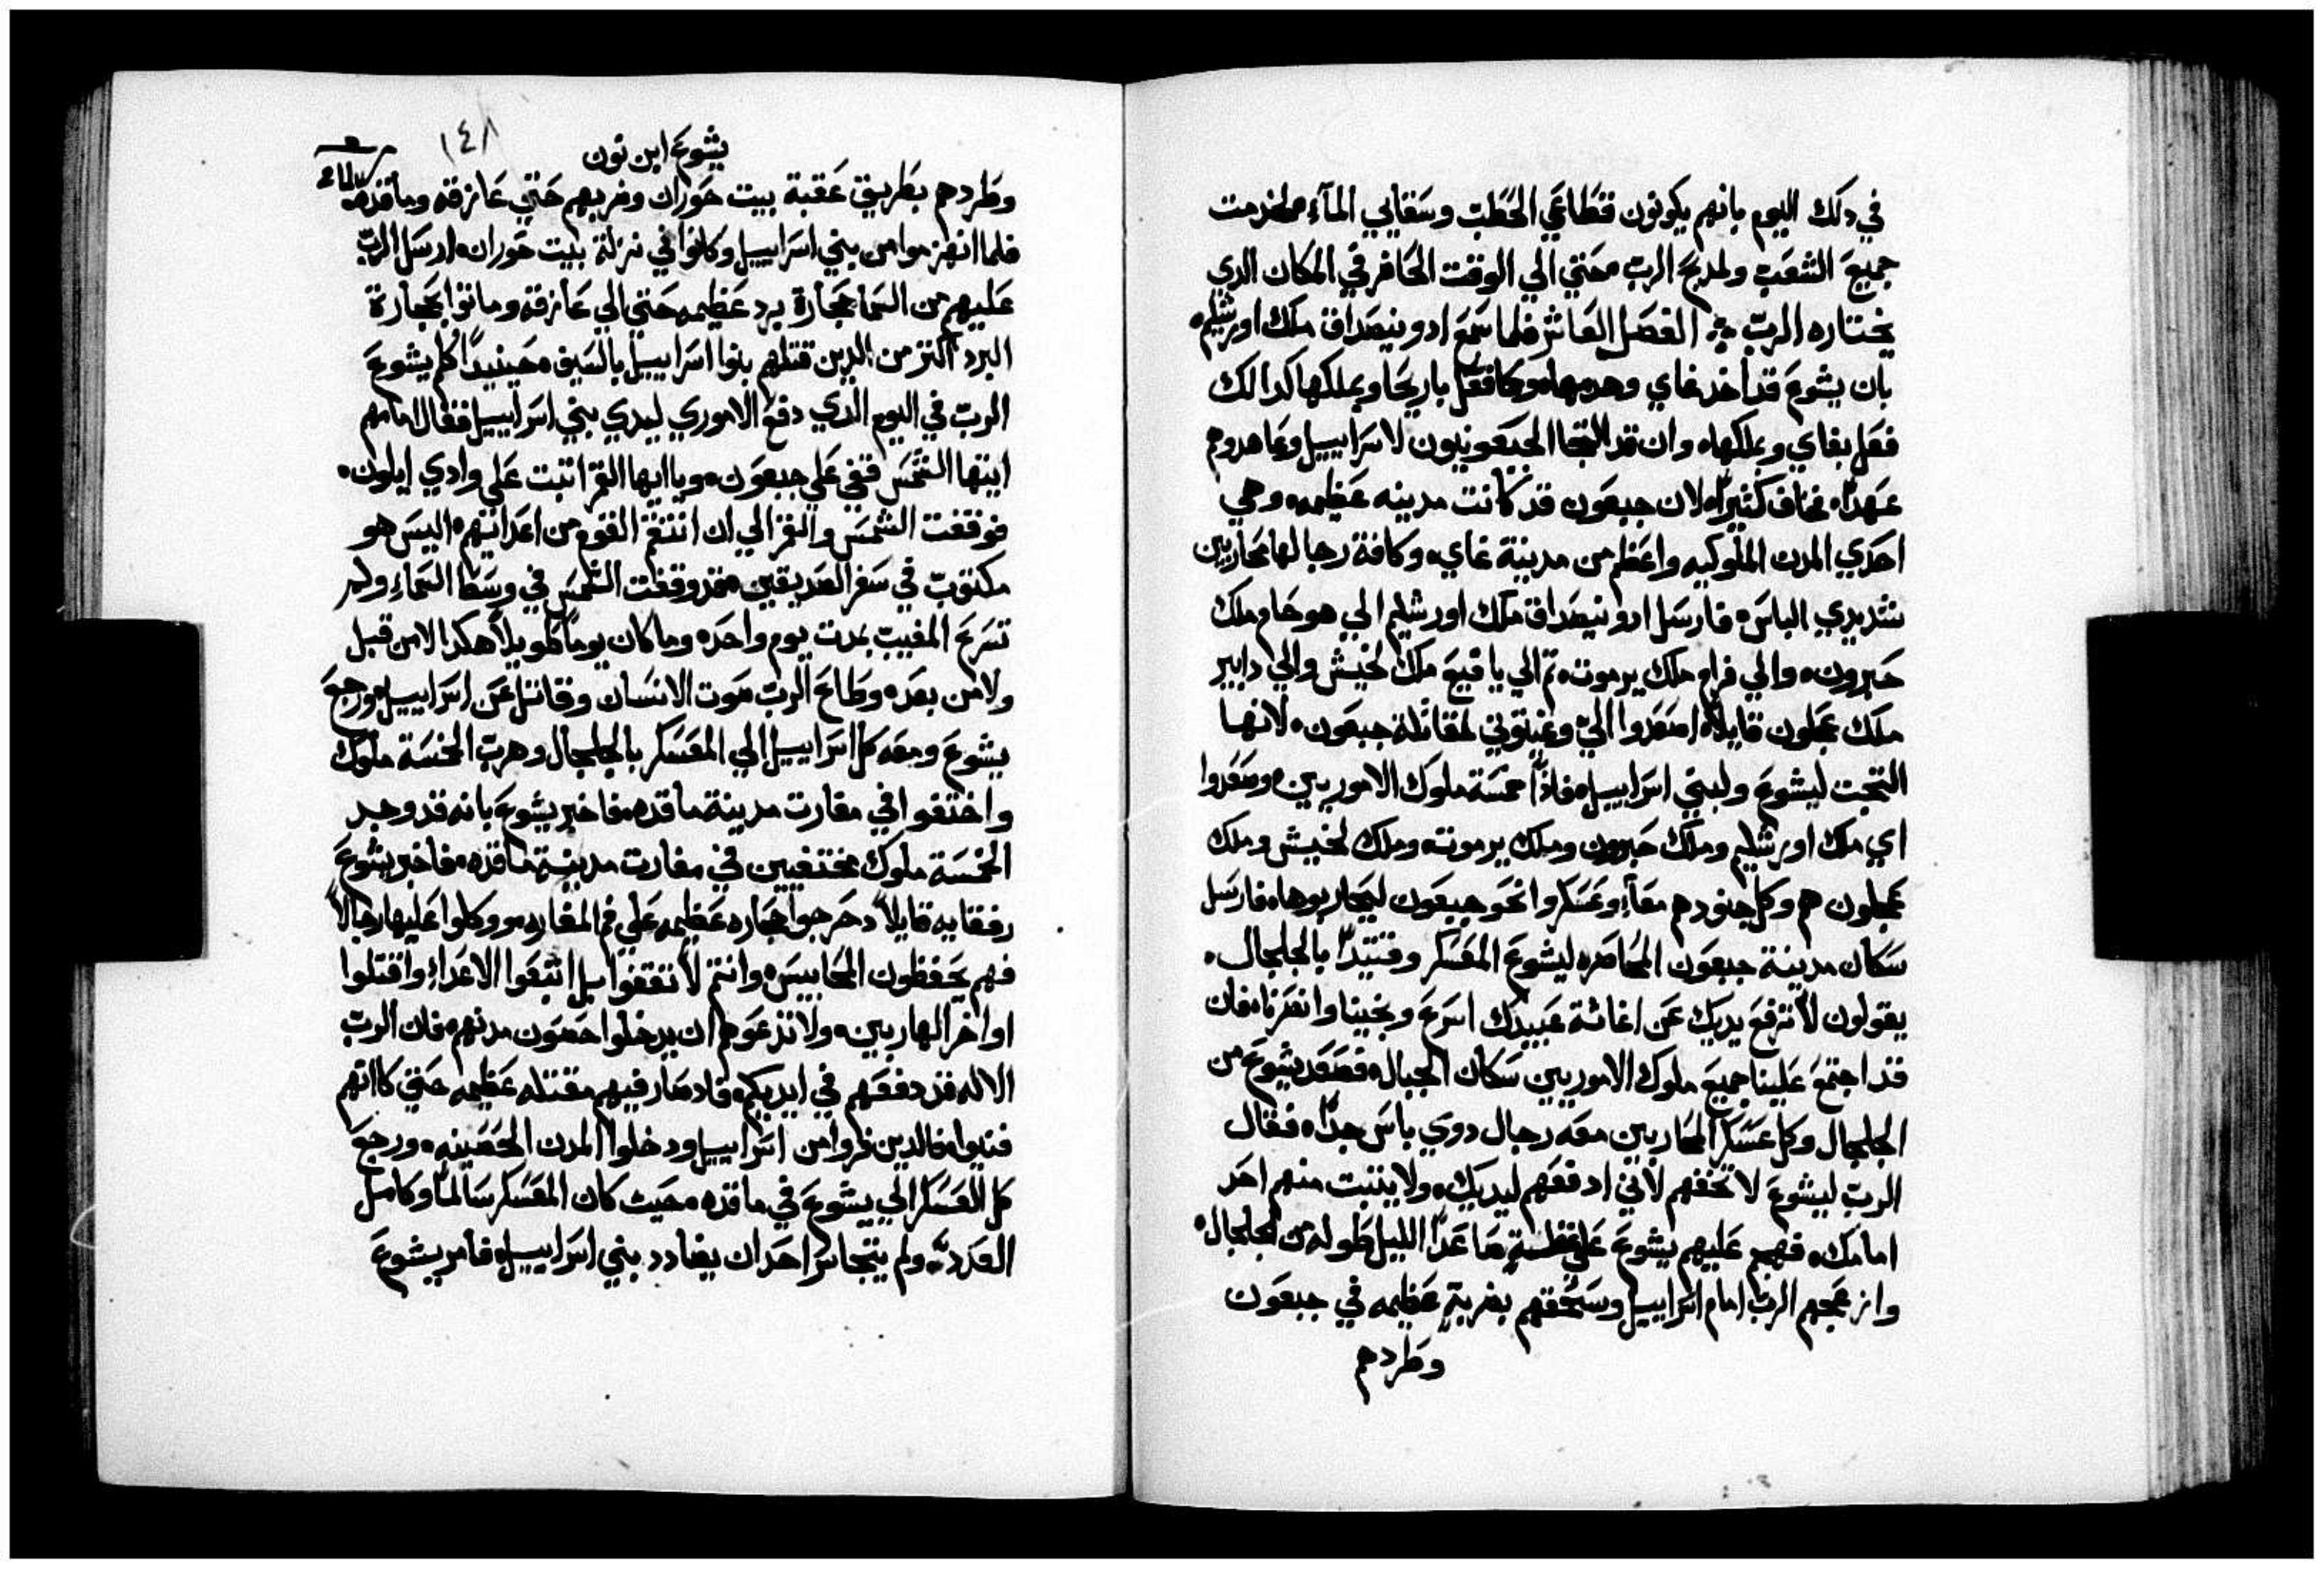 في دلك اليوم بانهم يكونون قطاعي الحطب وسقايي المآء لخدمت
جميع الشعب ولمدبح الرب حتي الي الوقت الحاضر في المكان الدي
يختاره الرب الفصل العاشر فلما سمع ادونيصداق ملك اورشليم
بان يشوع قد اخد غاي وهدمها وكما فعل باريحا وبملكها كدالك
فعل بغاي وبملكها وان قد التجا الجبعونيون لاسراييل وعاهدوهم
عهدًا فخاف كثيرًا لان جبعون قد كانت مدينه عظيمه وهي
احدي المدن الملوكيه واعظم من مدينة غاي وكافة رجالها محاربين
شديدي الباس فارسل ادونيصداق ملك اورشليم الي هوحام ملك
حبرون والي فرام ملك يرموت ثم الي يافيع ملك لخيش والي دابير
ملك عجلون قايلاً اصعدوا اليّ وغيتوني لمقاتلة جبعون لانها
التجت ليشوع ولبني اسراييل فاذًا خمسة ملوك الاموريين وصعدوا
اي ملك اورشليم وملك حبرون وملك يرموت وملك لخيش وملك
عجلون هم وكل جنودهم معًا وعسكروا نحو جبعون ليحاربوها فارسل
سكان مدينة جبعون المحاصره ليشوع المعسكر وقتيدٍ بالجلجال
يقولون لا ترفع يديك عن اغاثة عبيدك اسرع ونجينا وانصرنا فان
قد اجتمع علينا جميع ملوك الاموريين سكان الجبال فصعد يشوع من
الجلجال وكل عسكر المحاربين معه رجال دوي باس جدًا فقال
الرب ليشوع لا تخفهم لاني ادفعهم ليديك ولا يثبت منهم احد
امامك فهجم عليهم يشوع علي صاعدًا الليل طوله من الجلجال
وازعجهم الرب امام اسراييل وسحقهم بضربةٍ عظيمه في جبعون
وطردهم
يشوع ابن نون
١٤٨
وطردهم بطريق عقبة بيت حوران وضربهم حتي عازقه وماقده
فلما انهزموا من بني اسراييل وكانوا في نزلة بيت حوران ارسل الرب
عليهم من السما حجارة برد عظيمه حتي الي عازقه وماتوا بحجارة
البرد اكثر من الدين قتلهم بنوا اسراييل بالسيف حينيدًا كلم يشوع
الرب في اليوم الدي دفع الاموري ليدي بني اسراييل فقال امامهم
ايتها الشمس قفي علي جبعون ويا ايها القمر اثبت علي وادي ايلون
فوقفت الشمس والقمر الي ان انتقم القوم من اعدائهم اليس هو
مكتوب في سفر الصديقين فقد وقفت الشمس في وسط السماء ولم
تسرع المغيب بمدت يوم واحد وما كان يومًا طويلاً هكدا لا من قبل
ولا من بعد وطاع الرب صوت الانسان وقاتل عن اسراييل ورجع
يشوع ومعه كل اسراييل الي المعسكر بالجلجال وهرب الخمسة ملوك
واختفوا في مغارت مدينة ماقده فاخبر يشوع بانه قد وجد
الخمسة ملوك مختفيين في مغارت مدينة ماقده فاخبر يشوع
رفقايه قايلاً دحرجوا حجاره عظيمه علي فم المغاره ووكلوا عليها رجالاً
فهم يحفظون المحابيس وانتم لا تقفوا بل اتبعوا الاعداء واقتلوا
اواخر الهاربين ولا تدعوهم ان يدخلوا حصون مدنهم فان الرب
الاله قد دفعهم في ايديكم فاد صار فيهم مقتله عظيمه حتي كانهم
فنيوا فالدين فروا من اسراييل ودخلوا المدن الحصينه ورجع
كل العسكر الي يشوع في ماقده حيث كان المعسكر سالمًا وكامل
العدد ولم يتجاسر احد ان يضادد بني اسراييل فامر يشوع